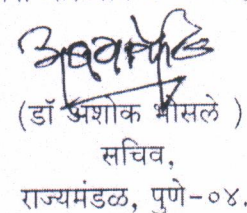 (डॉ अशोक भोसले )
सचिव,
राज्यमंडळ, पुणे-०४.